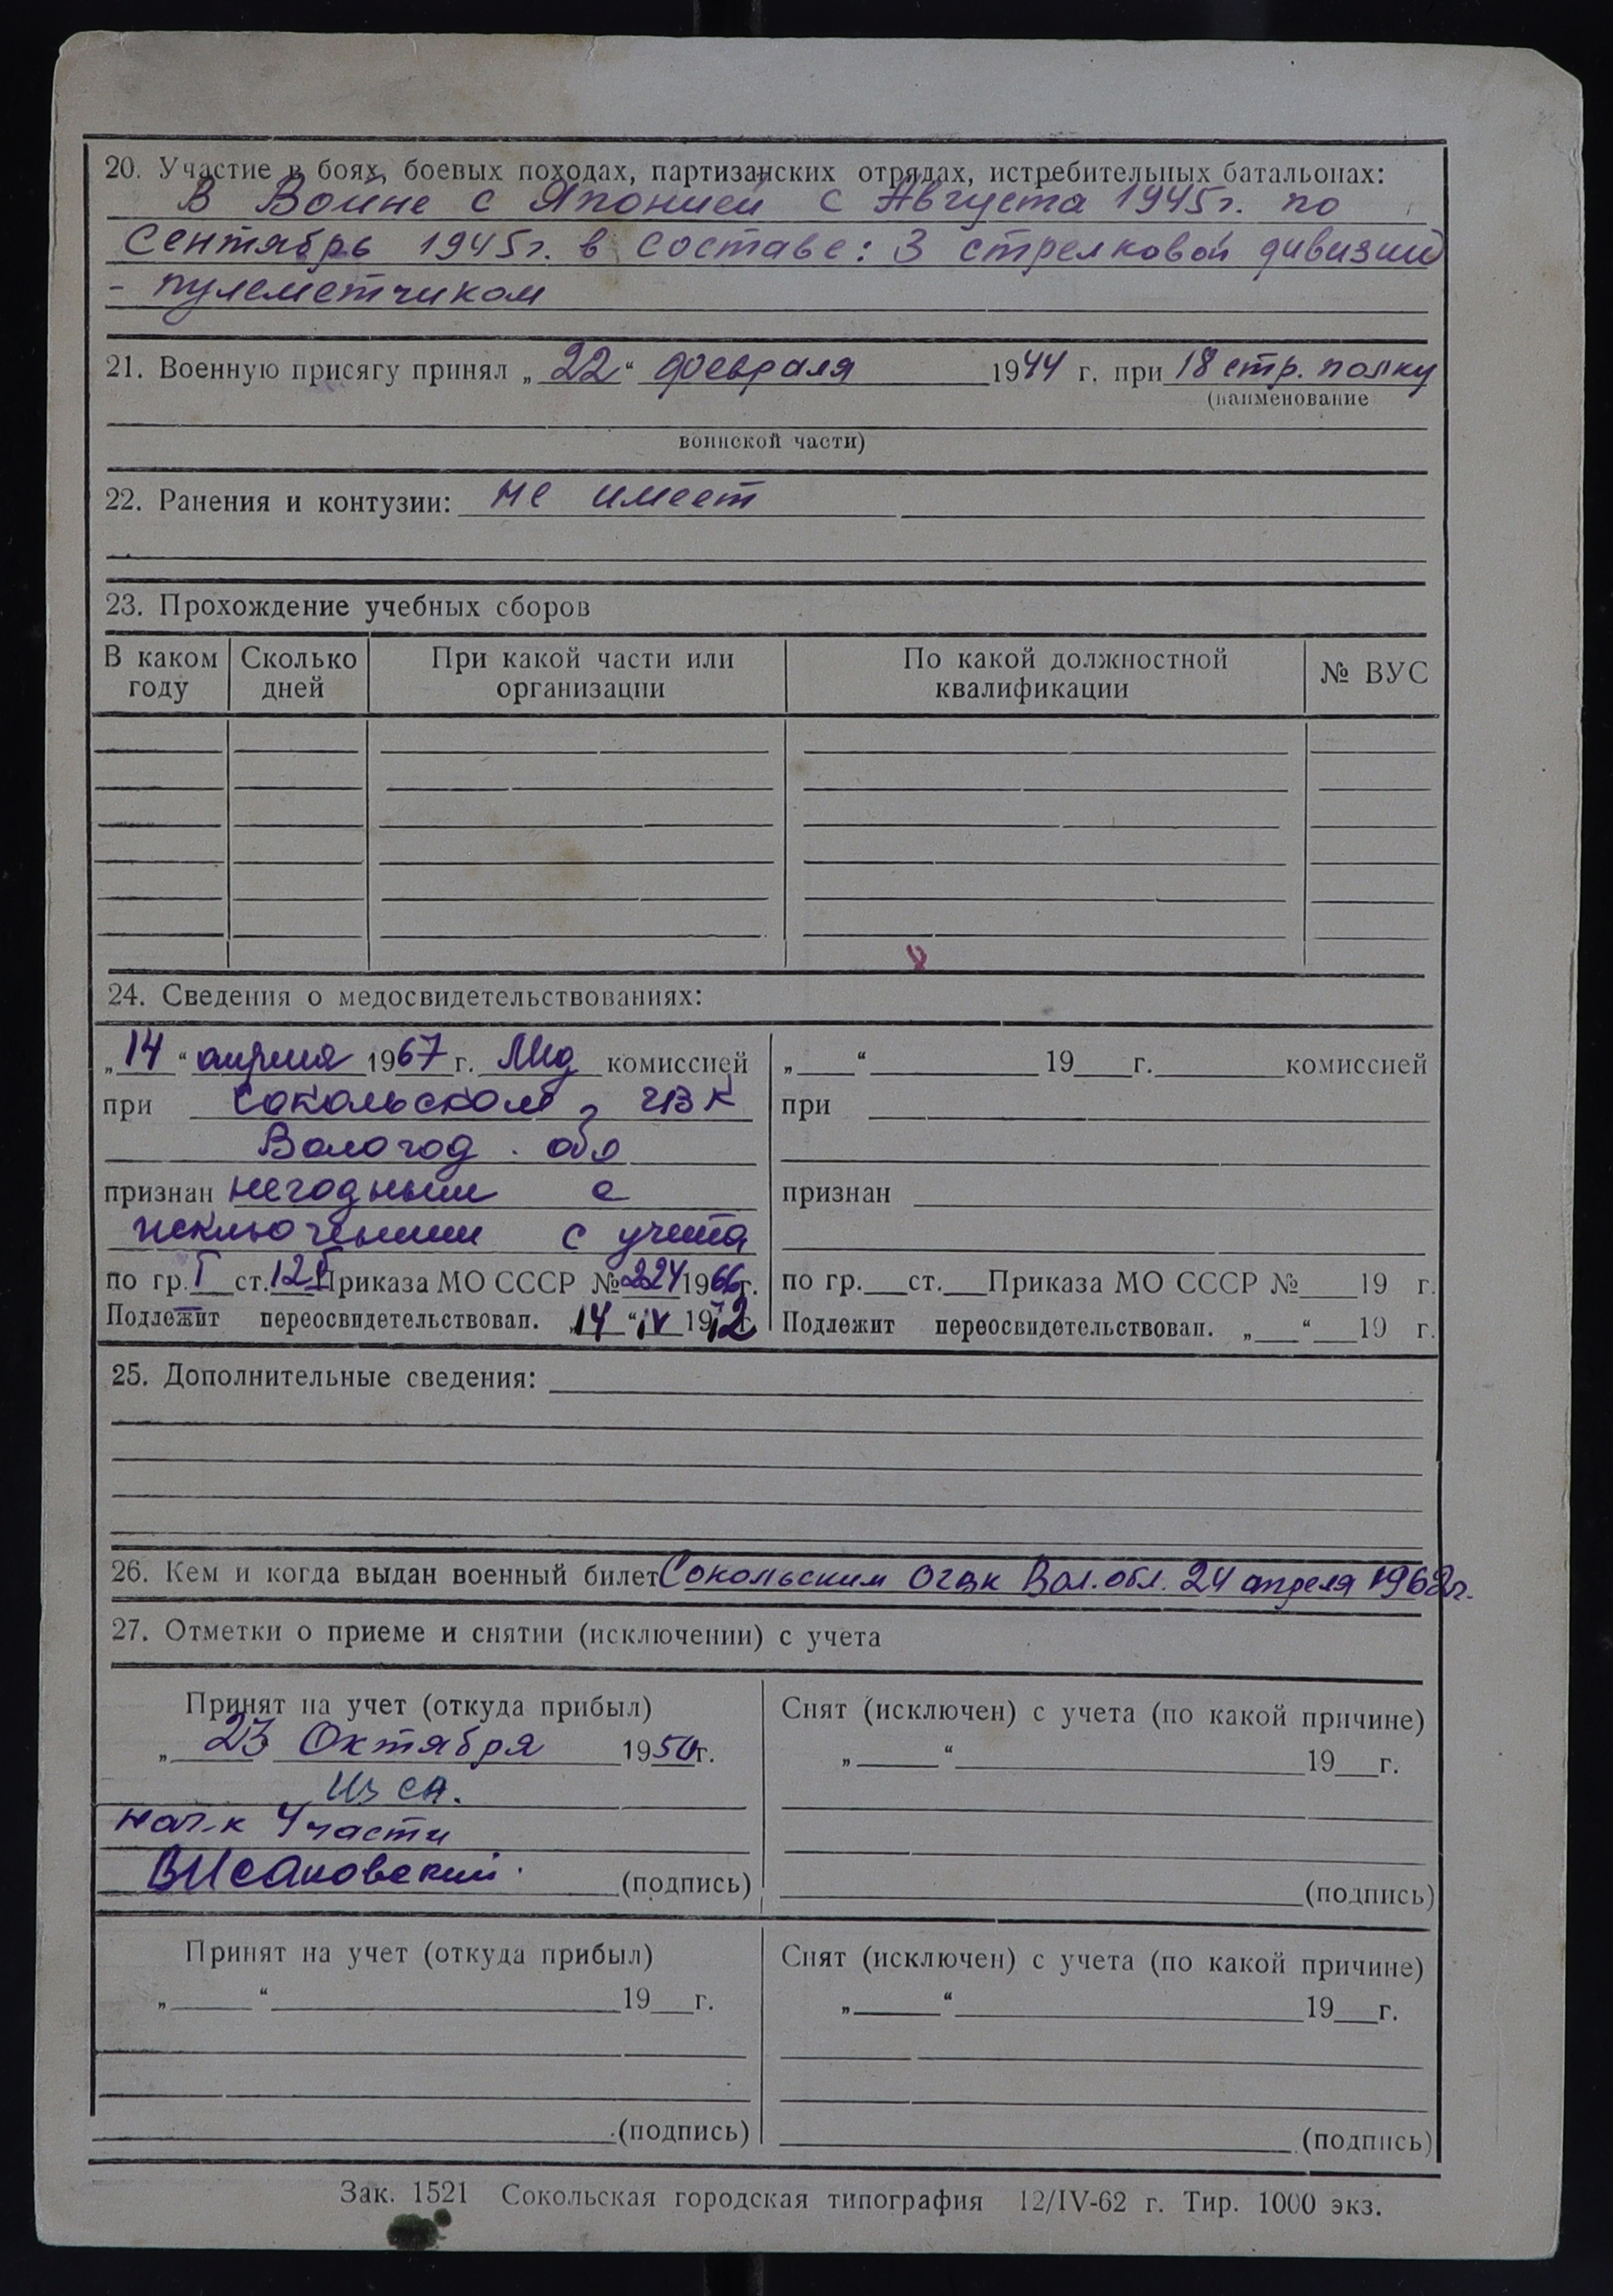 20. Участие в боях, боевых походах, партизанских отрядах, истребительных батальонах:
В Войне с Японией с Августа 1945г. по
Сентябрь 1945г. в составе: 3 стрелковой дивизии
- пулеметчиком
21. Военную присягу принял „22“ февраля 1944 г. при 18 стр. полку
(наименование
воинской части)
22. Ранения и контузии: не имеет
23. Прохождение учебных сборов
В каком году Сколько дней При какой части или организации По какой должностной квалификации № ВУС
24. Сведения о медосвидетельствованиях:
„14“ апреля 1967 г. комиссией
при Сокольском ГВК
Вологод. обл
признан негодным с
исключением с учета
по гр. I ст. 12 Приказа МО СССР № 224 1966г.
Подлежит переосвидетельствован. „14“ IV 1972 г.
„ “ 19 г. комиссией
при
признан
по гр. ст. Приказа МО СССР № 19 г.
Подлежит переосвидетельствован. „ “ 19 г.
25. Дополнительные сведения:
26. Кем и когда выдан военный билет Сокольским ОГВК Вол. обл. 24 апреля 1963г.
27. Отметки о приеме и снятии (исключении) с учета
Принят на учет (откуда прибыл)
„23 Октября 1950г.
Из СА.
нач-к 4 части
(подпись)
Снят (исключен) с учета (по какой причине)
„ “ 19 г.
(подпись)
Принят на учет (откуда прибыл)
„ “ 19 г.
(подпись)
Снят (исключен) с учета (по какой причине)
„ “ 19 г.
(подпись)
Зак. 1521 Сокольская городская типография 12/IV-62 г. Тир. 1000 экз.